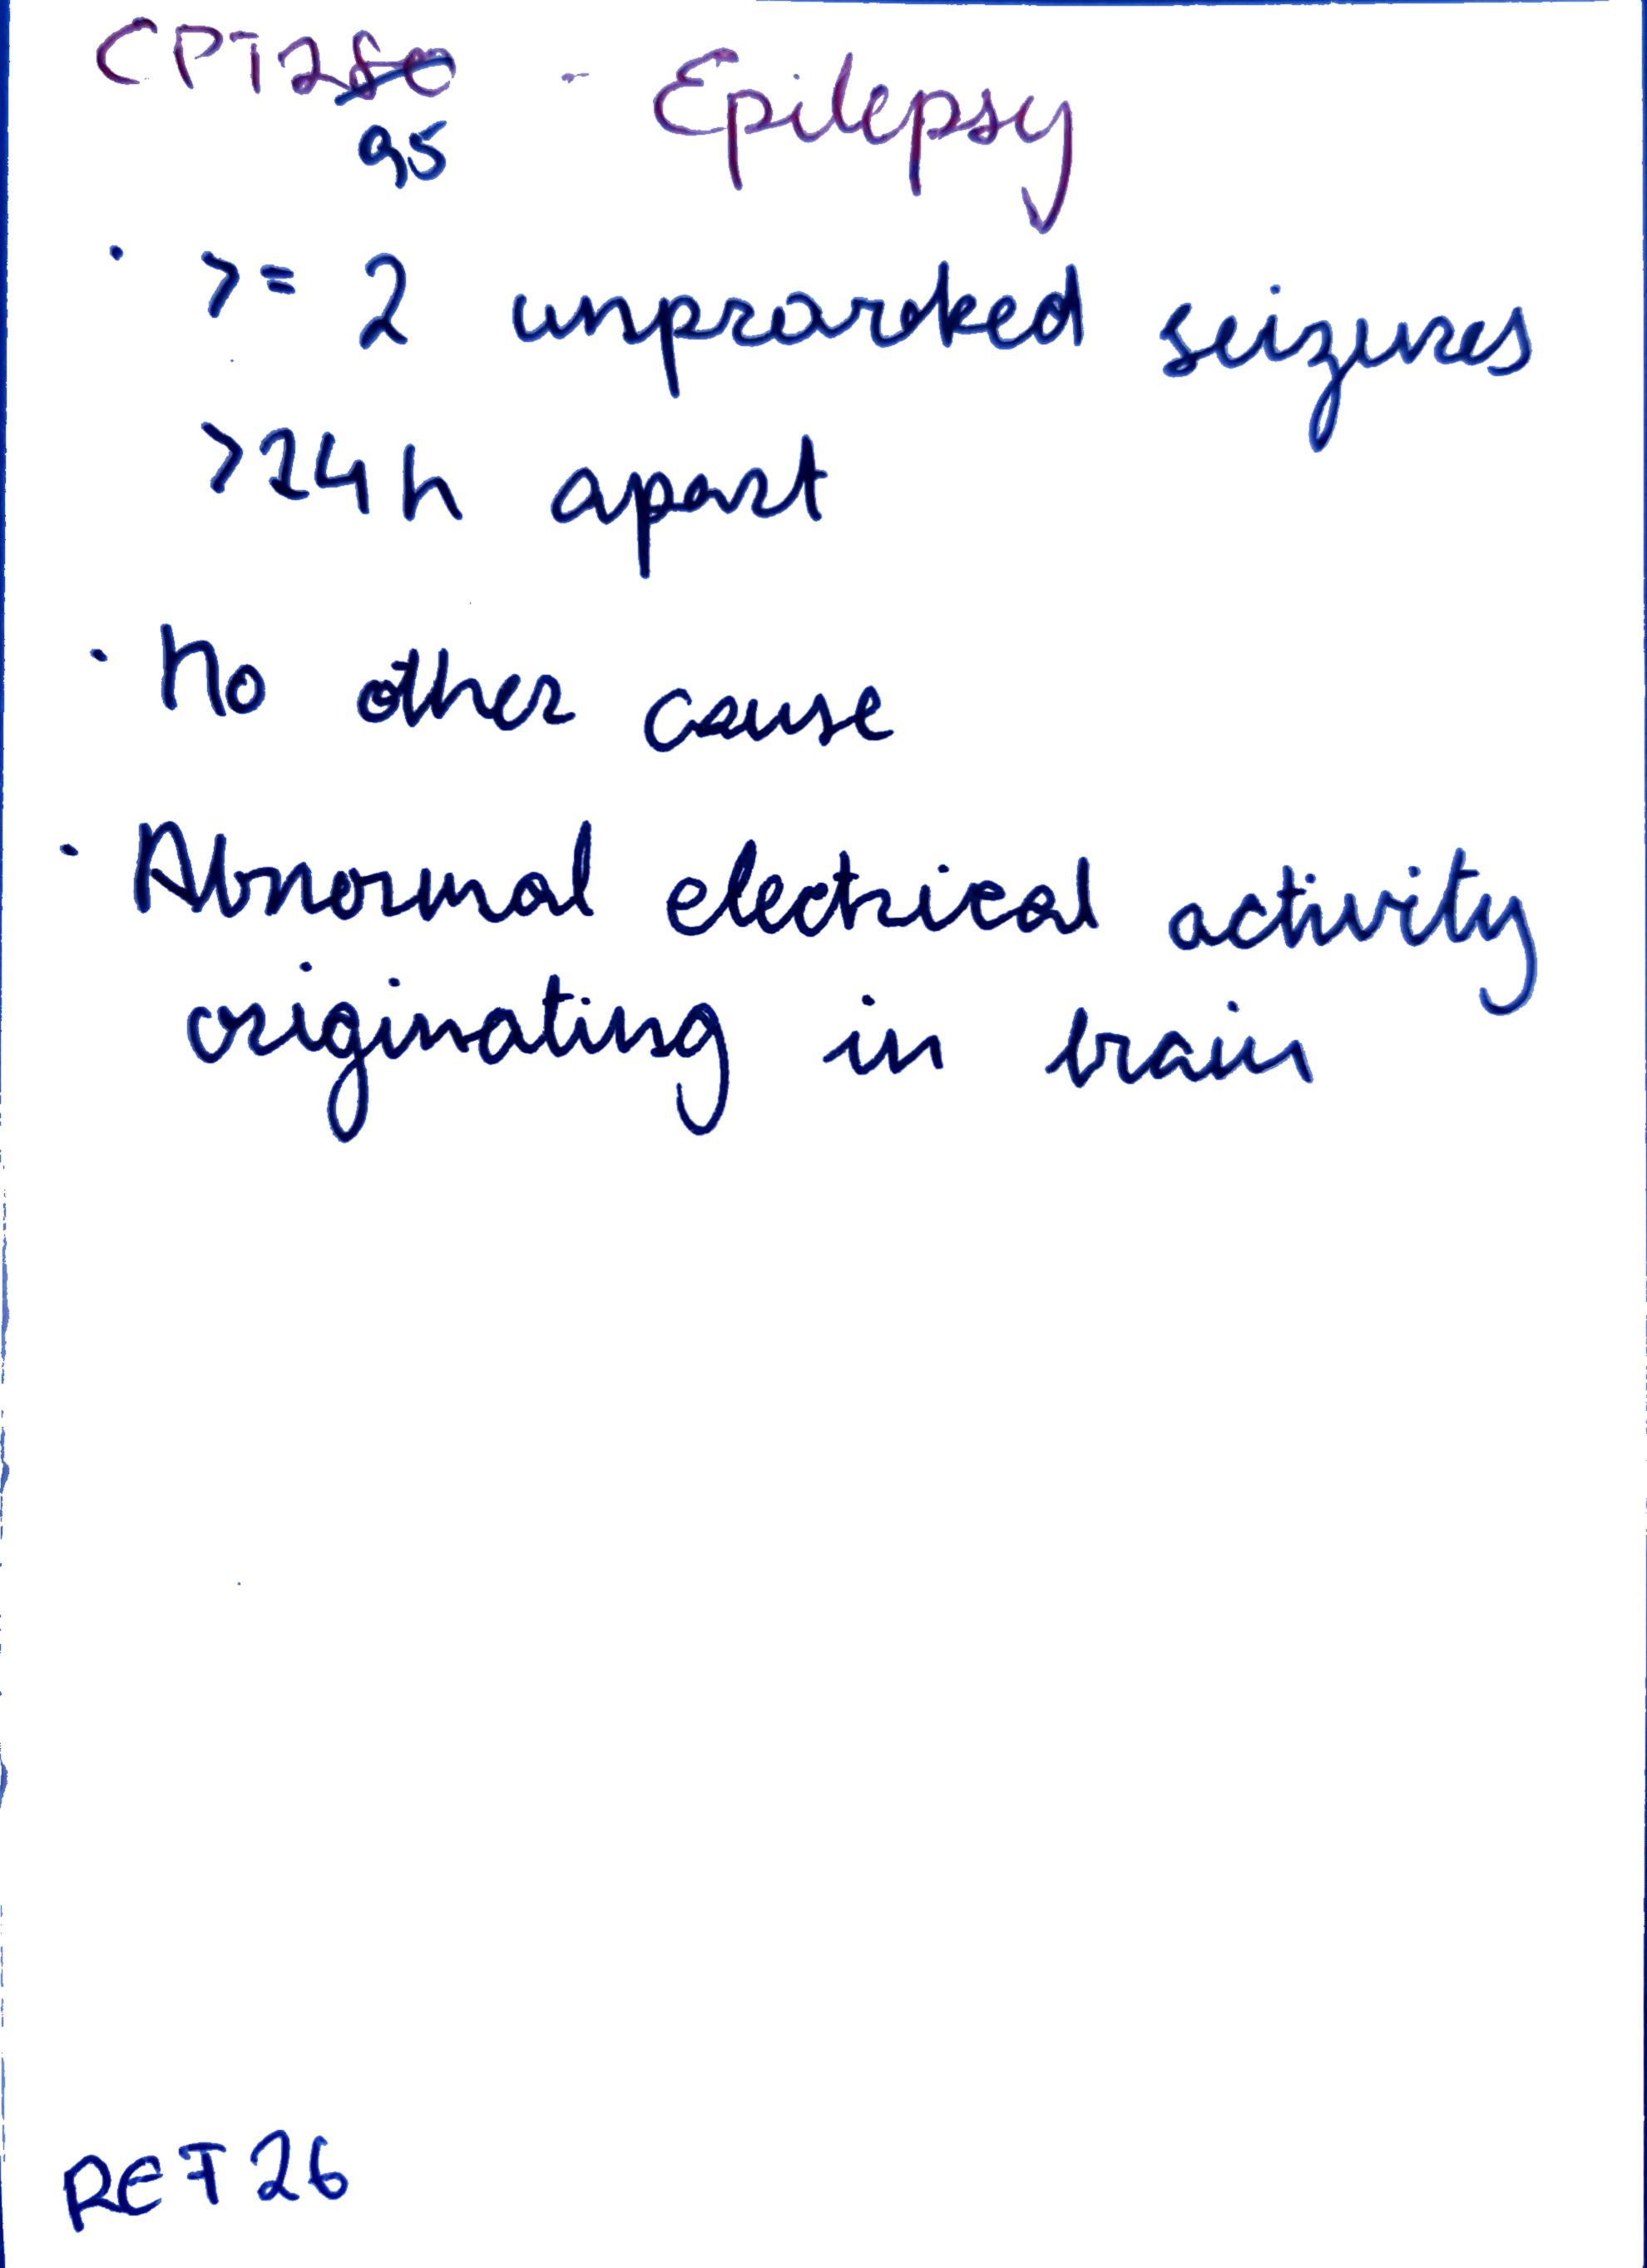 CPT280 - Epilepsy
95
· >= 2 unprovoked seizures
>24h apart
· No other cause
· Abnormal electrical activity
originating in brain
REF26